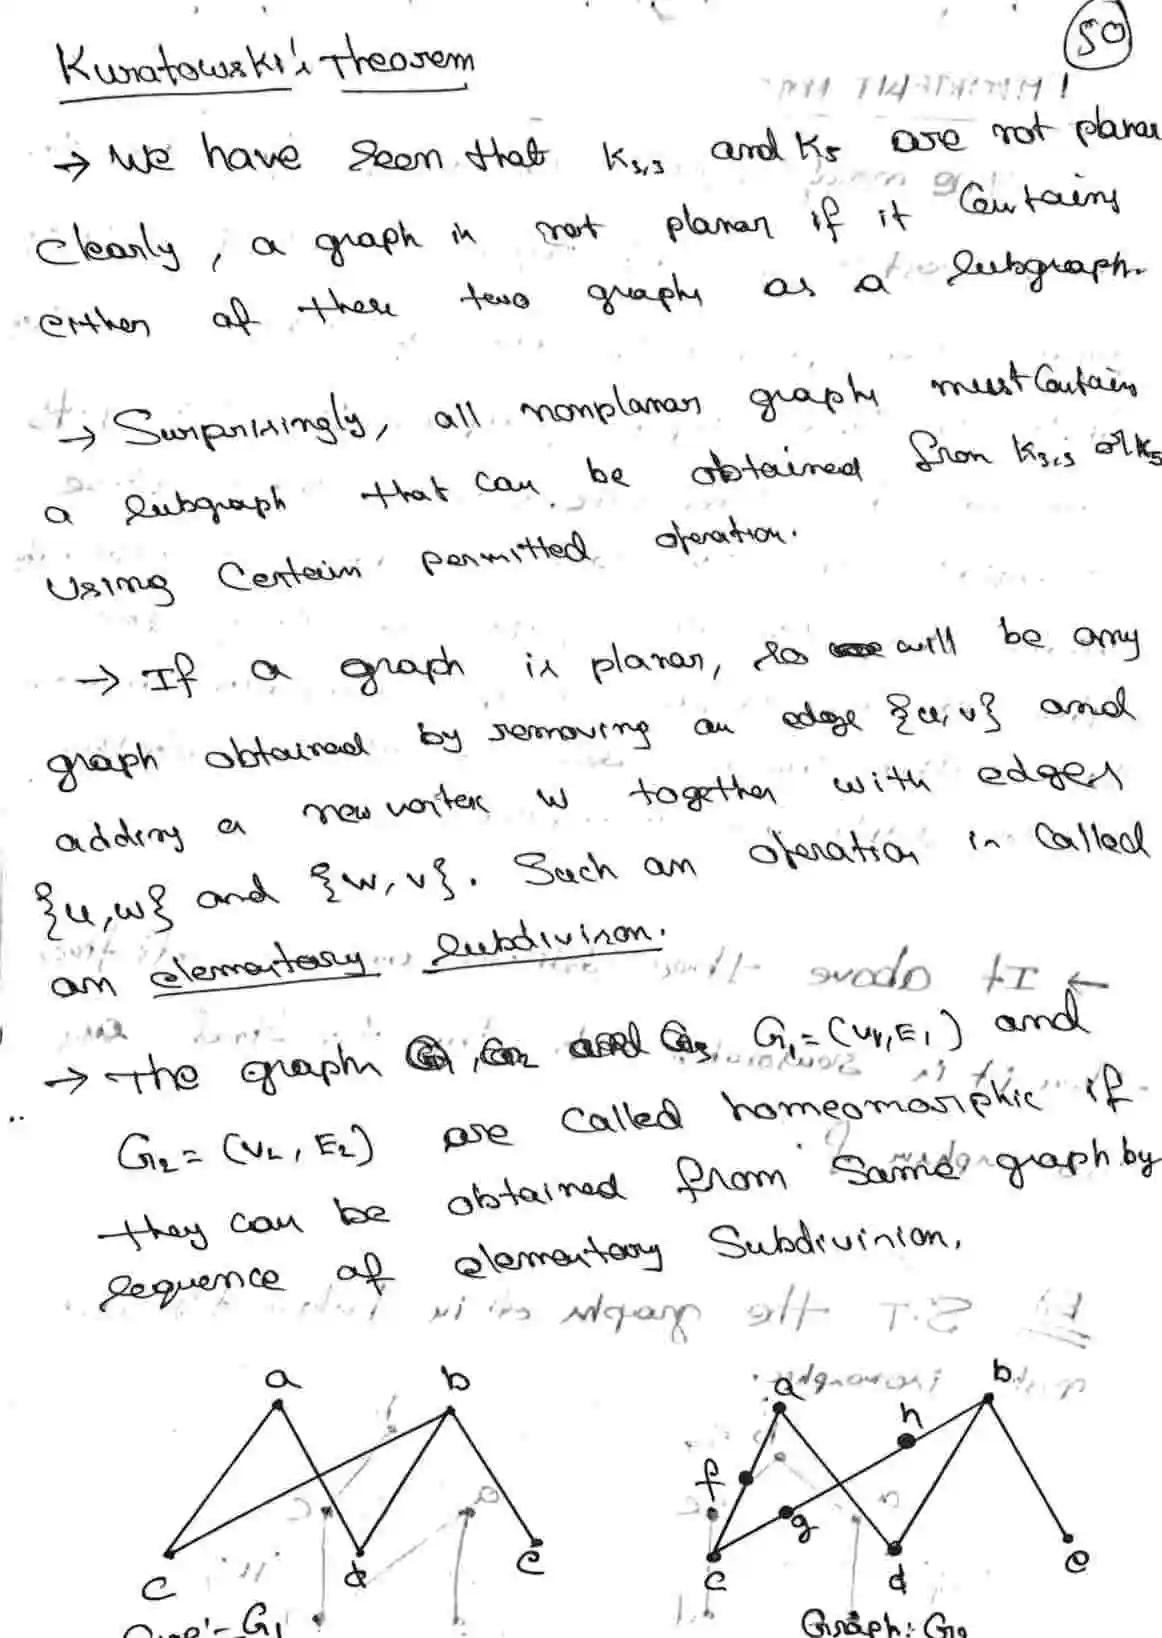 50
Kuratowski's Theorem
→ We have seen that K3,3 and K5 are not planar
clearly, a graph is not planar if it contains
either of these two graphs as a subgraph.
→ Surprisingly, all nonplanar graphs must contain
a subgraph that can be obtained from K3,3 or K5
Using Certain permitted operation.
→ If a graph is planar, so will be any
graph obtained by removing an edge {u,v} and
adding a new vertex w together with edges
{u,w} and {w,v}. Such an operation is called
an elementary subdivison.
→ The graph G1=(V1,E1) and
G2=(V2,E2) are called homeomorphic if
they can be obtained from same graph by
sequence of elementary Subdivision.
a b a b
h
f
g
c d e c d e
G1 Graph: G2